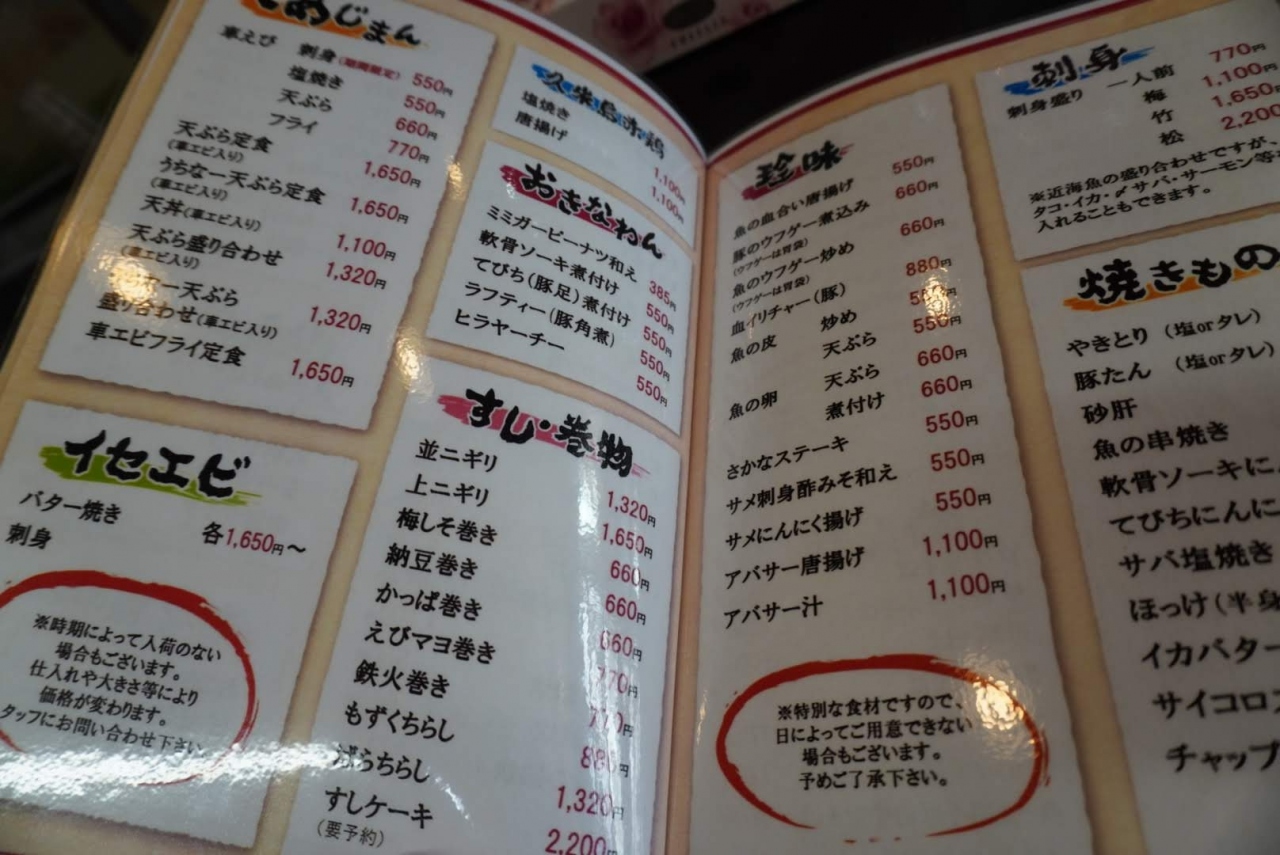 じまん
車えび 刺身(期間限定) 550円
塩焼き 550円
天ぷら 660円
フライ 770円
天ぷら定食 1,650円
(車エビ入り)
うちなー天ぷら定食 1,650円
(車エビ入り)
天丼(車エビ入り) 1,100円
天ぷら盛り合わせ 1,320円
(車エビ入り)
ー天ぷら
盛り合わせ(車エビ入り) 1,320円
車エビフライ定食 1,650円
イセエビ
バター焼き
刺身
各1,650円～
※時期によって入荷のない
場合もございます。
仕入れや大きさ等により
価格が変わります。
タッフにお問い合わせ下さい
久米島赤鶏
塩焼き 1,100円
唐揚げ 1,100円
おきなわん
ミミガーピーナツ和え 385円
軟骨ソーキ煮付け 550円
てびち(豚足)煮付け 550円
ラフティー(豚角煮) 550円
ヒラヤーチー 550円
すし・巻物
並ニギリ 1,320円
上ニギリ 1,650円
梅しそ巻き 660円
納豆巻き 660円
かっぱ巻き 660円
えびマヨ巻き 770円
鉄火巻き 770円
もずくちらし 880円
ばらちらし 1,320円
すしケーキ 2,200円
(要予約)
珍味
魚の血合い唐揚げ 550円
豚のウフゲー煮込み 660円
(ウフゲーは胃袋)
魚のウフゲー炒め 660円
(ウフゲーは胃袋)
血イリチャー(豚) 880円
魚の皮 炒め 550円
天ぷら 550円
魚の卵 天ぷら 660円
煮付け 660円
さかなステーキ 550円
サメ刺身酢みそ和え 550円
サメにんにく揚げ 550円
アバサー唐揚げ 1,100円
アバサー汁 1,100円
※特別な食材ですので、
日によってご用意できない
場合もございます。
予めご了承下さい。
刺身
刺身盛り 一人前 770円
梅 1,100円
竹 1,650円
松 2,200
※近海魚の盛り合わせですが、
タコ・イカ・〆サバ・サーモン等を
入れることもできます。
焼きもの
やきとり (塩orタレ)
豚たん (塩orタレ)
砂肝
魚の串焼き
軟骨ソーキに
てびちにんに
サバ塩焼き
ほっけ(半身
イカバター
サイコロス
チャップ